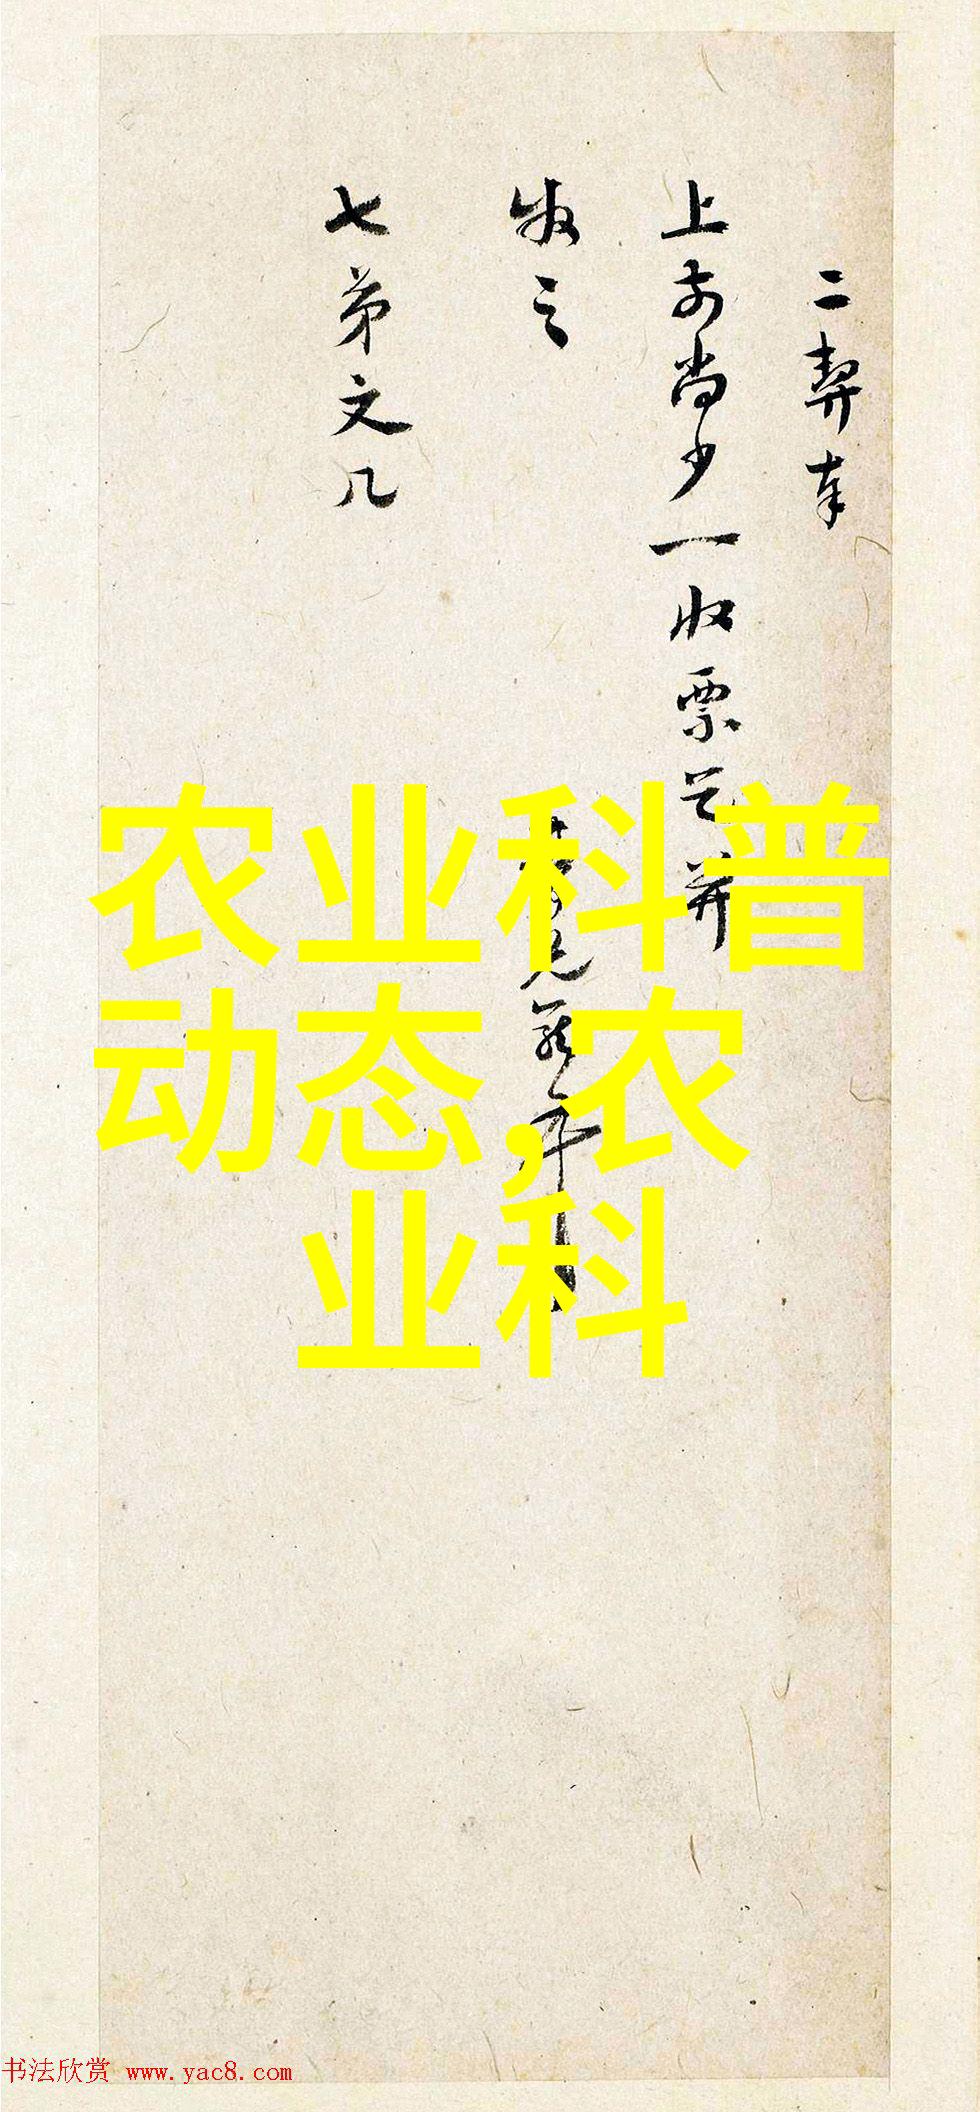 二契奉
上前尚少一收票乞并
发之
七弟文几
农业科普
动态,农
业科
书法欣赏 www.yac8.com